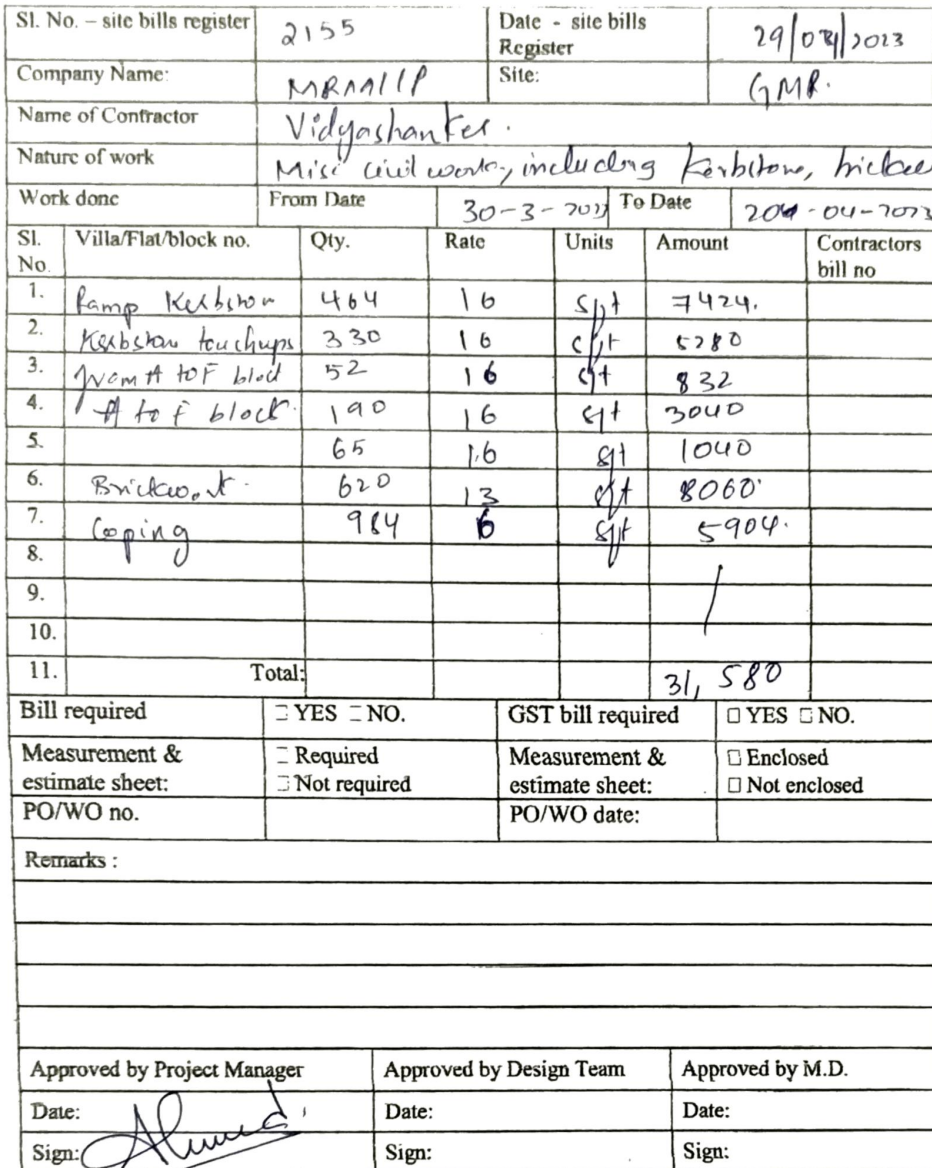 Sl. No. – site bills register 2155 Date - site bills Register 29/04/2023
Company Name: MRMLLP Site: GMR.
Name of Contractor Vidyashanker.
Nature of work Misc civil work, including Kerbstone,
Work done From Date 30-3-2023 To Date 20 -04-2023
Sl. No. Villa/Flat/block no. Qty. Rate Units Amount Contractors bill no
1. Ramp Kerbston 464 16 sft 7424.
2. Kerbston touchups 330 16 sft 5280
3. from A to F block 52 16 sft 832
4. A to F block. 190 16 sft 3040
5. 65 16 sft 1040
6. Brickwork. 620 13 sft 8060
7. Cooping 984 6 sft 5904.
8.
9.
10.
11. Total: 31,580
Bill required YES NO. GST bill required YES NO.
Measurement & estimate sheet: Required Not required Measurement & estimate sheet: Enclosed Not enclosed
PO/WO no. PO/WO date:
Remarks :
Approved by Project Manager Approved by Design Team Approved by M.D.
Date: Date: Date:
Sign: Sign: Sign: